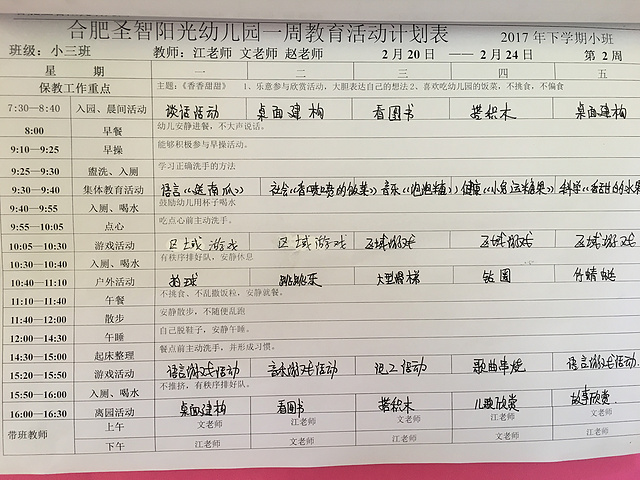 合肥圣智阳光幼儿园一周教育活动计划表 2017 年下学期小班
班级：小三班 教师：江老师 文老师 赵老师 2 月 20 日 —— 2 月 24 日 第 2 周
星 期 一 二 三 四 五
保教工作重点 主题：《香香甜甜》 1、乐意参与欣赏活动，大胆表达自己的想法 2、喜欢吃幼儿园的饭菜，不挑食，不偏食
7:30—8:40 入园、晨间活动 谈话活动 桌面建构 看图书 搭积木 桌面建构
8:00 早餐 幼儿安静进餐，不大声说话。
9:10—9:25 早操 能够积极参与早操活动。
9:25—9:30 盥洗、入厕 学习正确洗手的方法
9:30—9:40 集体教育活动 语言《送南瓜》 社会《香喷喷的饭菜》 音乐《泡泡糖》 健康《小兔运糖果》 科学《香甜的水果
9:40—9:55 入厕、喝水 鼓励幼儿用杯子喝水
9:55—10:05 点心 吃点心前主动洗手。
10:05—10:30 游戏活动 区域游戏 区域游戏 区域游戏 区域游戏 区域游戏
10:30—10:40 入厕、喝水 有秩序排好队，安静休息
10:40—11:10 户外活动 拍球 跳跳床 大型滑梯 钻圈 竹蜻蜓
11:10—11:40 午餐 不挑食、不乱撒饭粒，安静就餐。
11:40—12:00 散步 安静散步，不随便乱跑
12:00—14:30 午睡 自己脱鞋子，安静午睡。
14:30—15:00 起床整理 餐点前主动洗手，并形成习惯。
15:20—15:50 游戏活动 语言游戏活动 音乐游戏活动 泥工活动 歌曲串烧 语言游戏活动.
15:50—16:00 入厕、喝水 不推挤，有秩序排好队。
16:00—16:30 离园活动 桌面建构 看图书 搭积木 儿歌欣赏 故事欣赏.
带班教师 上午 文老师 江老师 文老师 文老师 文老师
下午 江老师 文老师 江老师 江老师 江老师